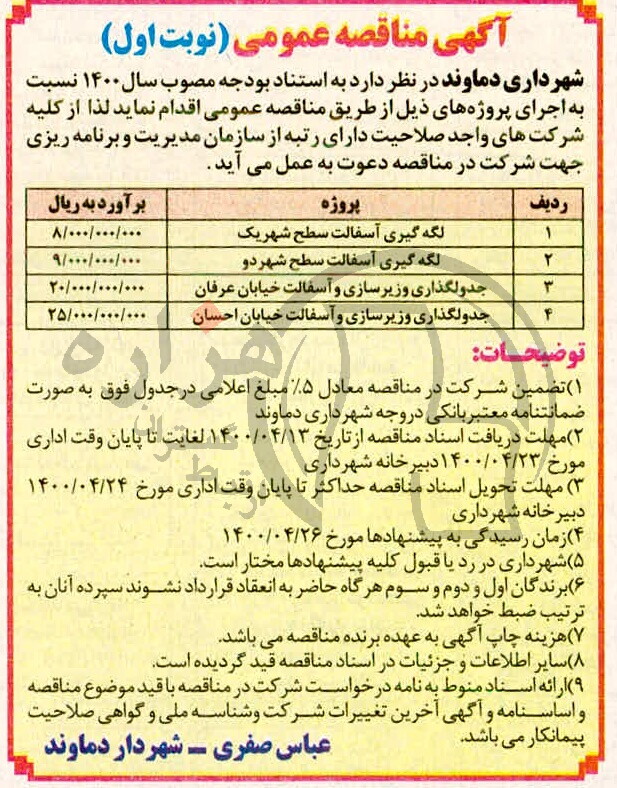 آگهی مناقصه عمومی (نوبت اول)
شهرداری دماوند در نظر دارد به استناد بودجه مصوب سال ۱۴۰۰ نسبت
به اجرای پروژه‌های ذیل از طریق مناقصه عمومی اقدام نماید لذا از کلیه
شرکت های واجد صلاحیت دارای رتبه از سازمان مدیریت و برنامه ریزی
جهت شرکت در مناقصه دعوت به عمل می آید.
ردیف پروژه برآورد به ریال
۱ لگه گیری آسفالت سطح شهر یک ۸/۰۰۰/۰۰۰/۰۰۰
۲ لگه گیری آسفالت سطح شهر دو ۹/۰۰۰/۰۰۰/۰۰۰
۳ جدولگذاری وزیرسازی و آسفالت خیابان عرفان ۲۰/۰۰۰/۰۰۰/۰۰۰
۴ جدولگذاری وزیرسازی و آسفالت خیابان احسان ۲۵/۰۰۰/۰۰۰/۰۰۰
توضیحات:
۱)تضمین شرکت در مناقصه معادل ۵٪ مبلغ اعلامی در جدول فوق به صورت
ضمانتنامه معتبر بانکی در وجه شهرداری دماوند
۲)مهلت دریافت اسناد مناقصه از تاریخ ۱۴۰۰/۰۴/۱۳ لغایت تا پایان وقت اداری
مورخ ۱۴۰۰/۰۴/۲۳ دبیرخانه شهرداری
۳) مهلت تحویل اسناد مناقصه حداکثر تا پایان وقت اداری مورخ ۱۴۰۰/۰۴/۲۴
دبیرخانه شهرداری
۴)زمان رسیدگی به پیشنهادها مورخ ۱۴۰۰/۰۴/۲۶
۵)شهرداری در رد یا قبول کلیه پیشنهادها مختار است.
۶)برندگان اول و دوم و سوم هرگاه حاضر به انعقاد قرارداد نشوند سپرده آنان به
ترتیب ضبط خواهد شد.
۷)هزینه چاپ آگهی به عهده برنده مناقصه می باشد.
۸)سایر اطلاعات و جزئیات در اسناد مناقصه قید گردیده است.
۹)ارائه اسناد منوط به نامه درخواست شرکت در مناقصه با قید موضوع مناقصه
و اساسنامه و آگهی آخرین تغییرات شرکت وشناسه ملی و گواهی صلاحیت
پیمانکار می باشد.
عباس صفری - شهردار دماوند
هزاره